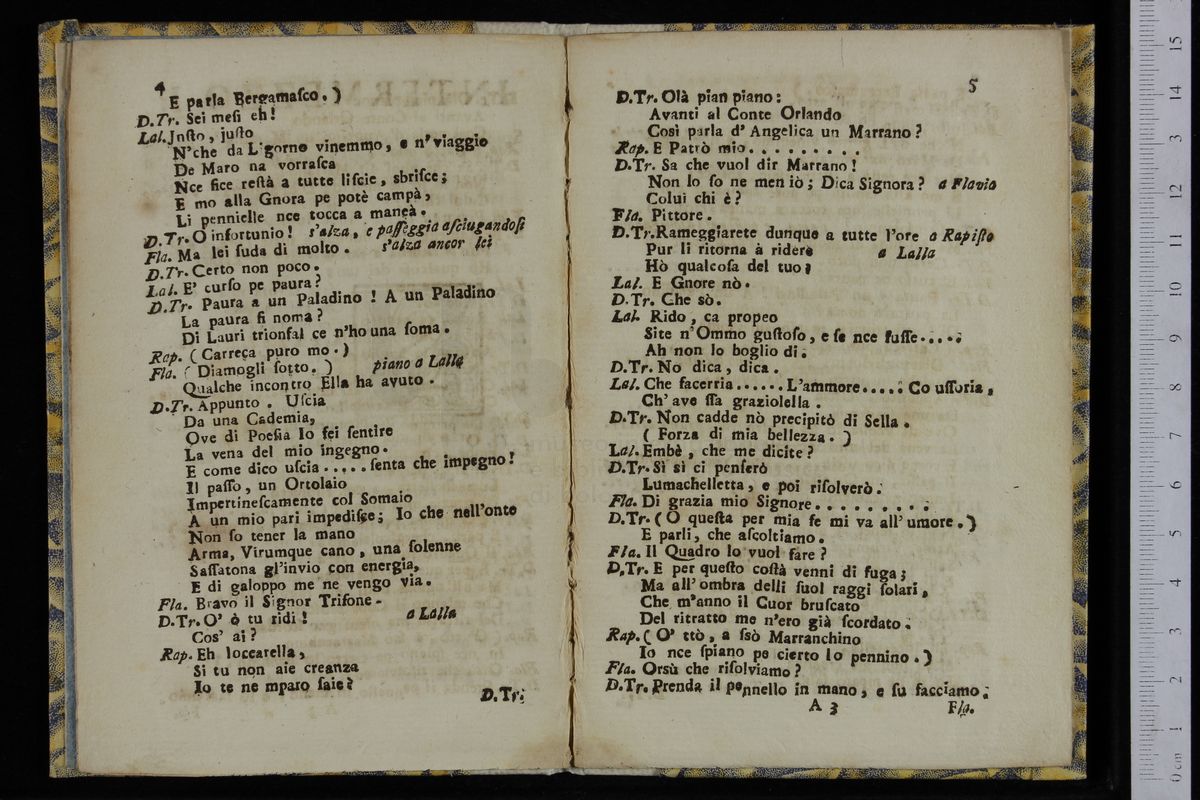 4
E parla Bergamaſco. )
D.Tr. Sei meſi eh!
Lal. Juſto, juſto
N'che da L'gorno vinemmo, e n'viaggio
De Maro na vorraſca
Nce fice reſtà a tutte liſcie, sbriſce;
E mo alla Gnora pe potè campà,
Li pennielle nce tocca a maneà.
D.Tr. O infortunio! s'alza, e paſſeggia aſciugandoſi
Fla. Ma lei ſuda di molto. s'alza ancor lei
D.Tr. Certo non poco.
Lal. E' curſo pe paura?
D.Tr. Paura a un Paladino ! A un Paladino
La paura ſi noma?
Di Lauri trionfal ce n'ho una ſoma.
Rap. ( Carreca puro mo. )
Fla. ( Diamogli ſotto. ) piano a Lalla
Qualche incontro Ella ha avuto.
D.Tr. Appunto. Uſcia
Da una Cademia,
Ove di Poeſia Io fei ſentire
La vena del mio ingegno.
E come dico uſcia ..... ſenta che impegno!
Il paſſo, un Ortolaio
Impertineſcamente col Somaio
A un mio pari impediſce; Io che nell'onte
Non ſo tener la mano
Arma, Virumque cano, una ſolenne
Saſſatona gl'invio con energia,
E di galoppo me ne vengo via.
Fla. Bravo il Signor Trifone.
D.Tr. O' ò tu ridi! a Lalla
Cos' ai?
Rap. Eh loccarella,
Si tu non aie creanza
Io te ne mparo ſaie?
D.Tr.
5
D.Tr. Olà pian piano:
Avanti al Conte Orlando
Così parla d' Angelica un Marrano?
Rap. E Patrò mio.........
D.Tr. Sa che vuol dir Marrano!
Non lo ſo ne men iò; Dica Signora? a Flavia
Colui chi è?
Fla. Pittore.
D.Tr. Rameggiarete dunque a tutte l'ore a Rapiſto
Pur lì ritorna à ridere a Lalla
Hò qualcoſa del tuo?
Lal. E Gnore nò.
D.Tr. Che sò.
Lal. Rido, ca propeo
Site n'Ommo guſtoſo, e ſe nce fuſſe.....
Ah non lo boglio di.
D.Tr. No dica, dica.
Lal. Che facerria...... L'ammore..... Co uſſoria,
Ch' ave ſſa graziolella.
D.Tr. Non cadde nò precipitò di Sella.
( Forza di mia bellezza. )
Lal. Embè, che me dicite?
D.Tr. Sì sì ci penſerò
Lumachelletta, e poi riſolverò.
Fla. Di grazia mio Signore.........
D.Tr. ( O queſta per mia fe mi va all' umore. )
E parli, che aſcoltiamo.
Fla. Il Quadro lo vuol fare?
D.Tr. E per queſto coſtà venni di fuga;
Ma all' ombra delli ſuol raggi ſolari,
Che m'anno il Cuor bruſcato
Del ritratto me n'ero già ſcordato.
Rap. ( O' ttò, a ſsò Marranchino
Io nce ſpiano pe cierto lo pennino. )
Fla. Orsù che riſolviamo?
D.Tr. Prenda il pennello in mano, e ſu facciamo.
A 3 Fla.